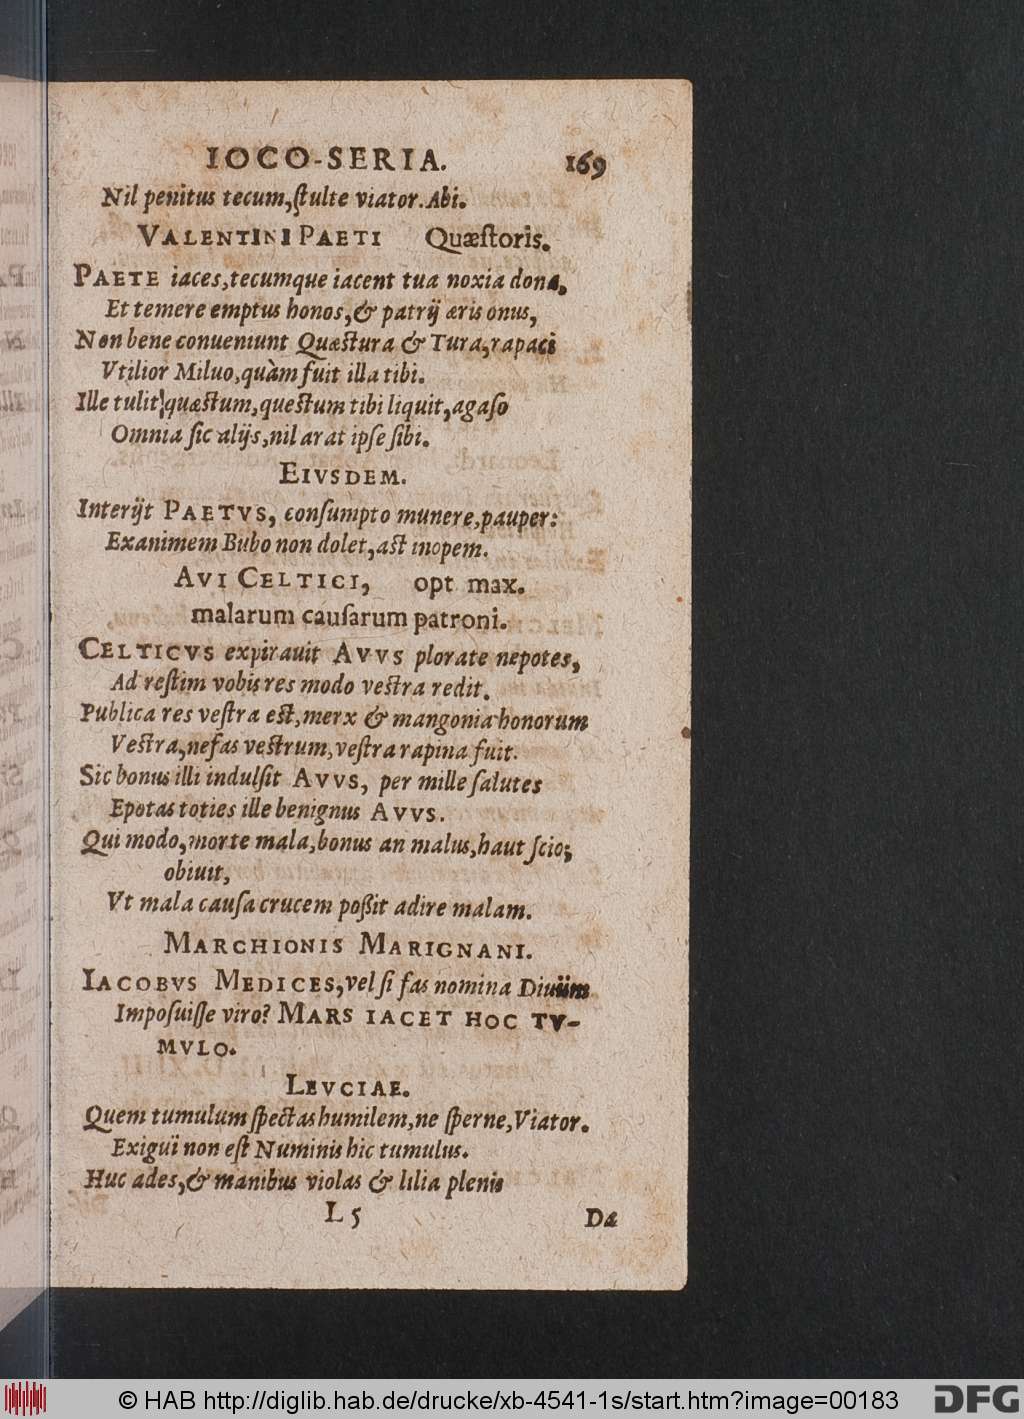 IOCO-SERIA. 169
Nil penitus tecum, ſtulte viator. Abi.
VALENTINI PAETI Quæſtoris.
PAETE iaces, tecumque iacent tua noxia dona,
Et temere emptus honos, & patrij æris onus,
Non bene conueniunt Quæſtura & Tura, rapaci
Vtilior Miluo, quàm fuit illa tibi.
Ille tulit quæſtum, queſtum tibi liquit, agaſo
Omnia ſic alijs, nil arat ipſe ſibi.
EIVSDEM.
Interijt PAETVS, conſumpto munere, pauper:
Exanimem Bubo non dolet, aſt inopem.
AVI CELTICI, opt max.
malarum cauſarum patroni.
CELTICVS expirauit AVVS plorate nepotes,
Ad reſtim vobis res modo veſtra redit.
Publica res veſtra eſt, merx & mangonia honorum
Veſtra, nefas veſtrum, veſtra rapina fuit.
Sic bonus illi indulſit AVVS, per mille ſalutes
Epotas toties ille benignus AVVS.
Qui modo, morte mala, bonus an malus, haut ſcio,
obiuit,
Vt mala cauſa crucem poßit adire malam.
MARCHIONIS MARIGNANI.
IACOBVS MEDICES, vel ſi fas nomina Diuûm
Impoſuiſſe viro? MARS IACET HOC TV-
MVLO.
LEVCIAE.
Quem tumulum ſpectas humilem, ne ſperne, Viator.
Exiguï non eſt Numinis hic tumulus.
Huc ades, & manibus violas & lilia plenis
L 5 Da
© HAB http://diglib.hab.de/drucke/xb-4541-1s/start.htm?image=00183 DFG